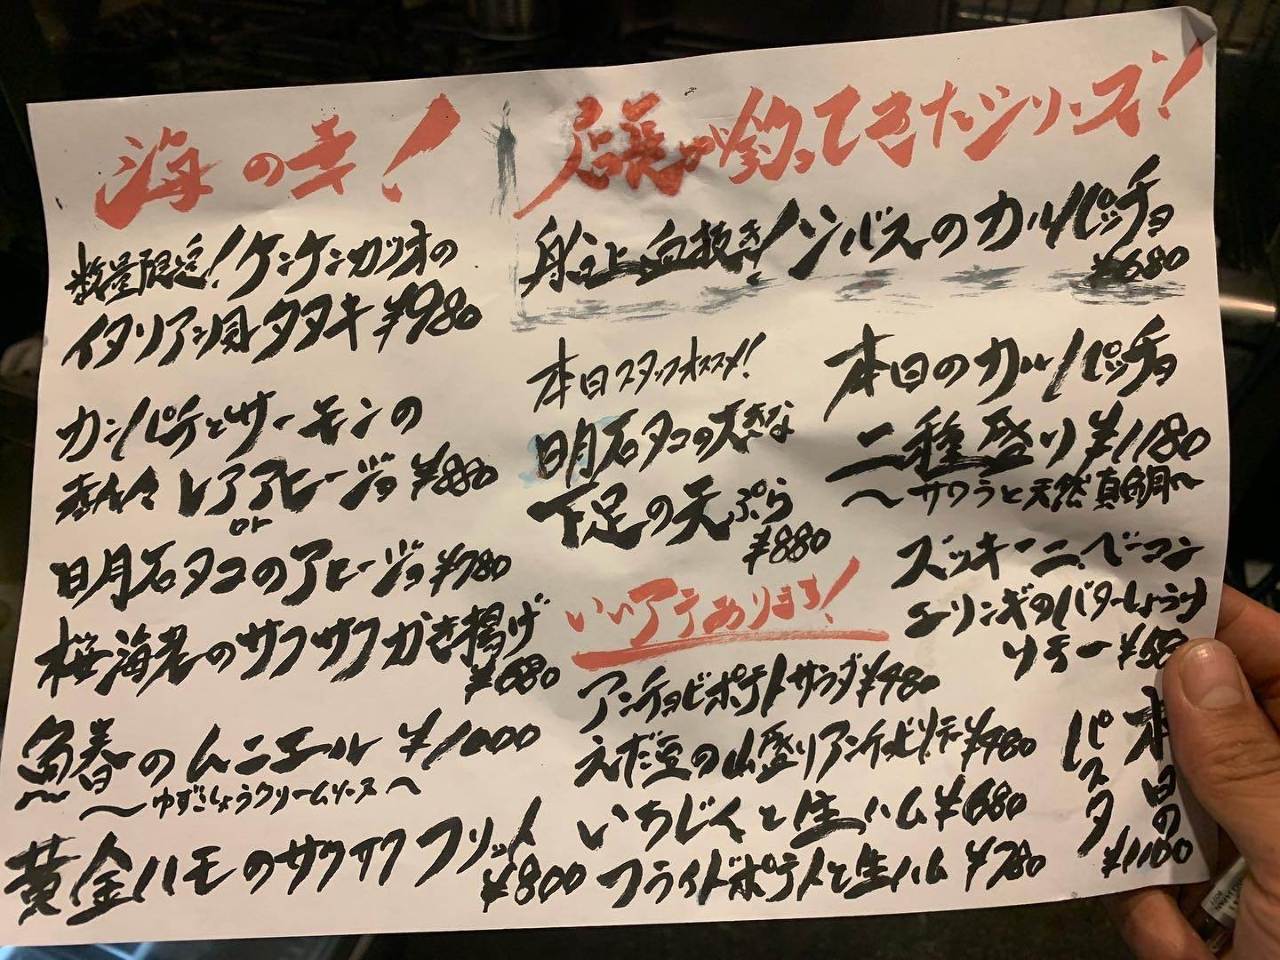 海の幸!
数量限定!ケンケンカツオの
イタリアン風タタキ ¥980
カンパチとサーモンの
レアアヒージョ ¥880
or
明石タコのアヒージョ ¥780
桜海老のサクサクかき揚げ
¥680
¥1000
〜ゆずこしょうクリームソース〜
黄金ハモのサクサクフリット
¥800
店長が釣ってきたシリーズ!
船上血抜き!シーバスのカルパッチョ
¥680
本日スタッフオススメ!
明石タコの大きな
下足の天ぷら
¥880
本日のカルパッチョ
二種盛り ¥1180
〜サワラと天然真鯛〜
ズッキーニ、ベーコン
エリンギのバターしょうゆ
ソテー
いいアテあります!
アンチョビポテトサラダ ¥480
えだ豆の山盛りアンチョビソテー ¥480
いちじくと生ハム ¥680
フライドポテトと生ハム ¥780
本日の
パスタ
¥1100